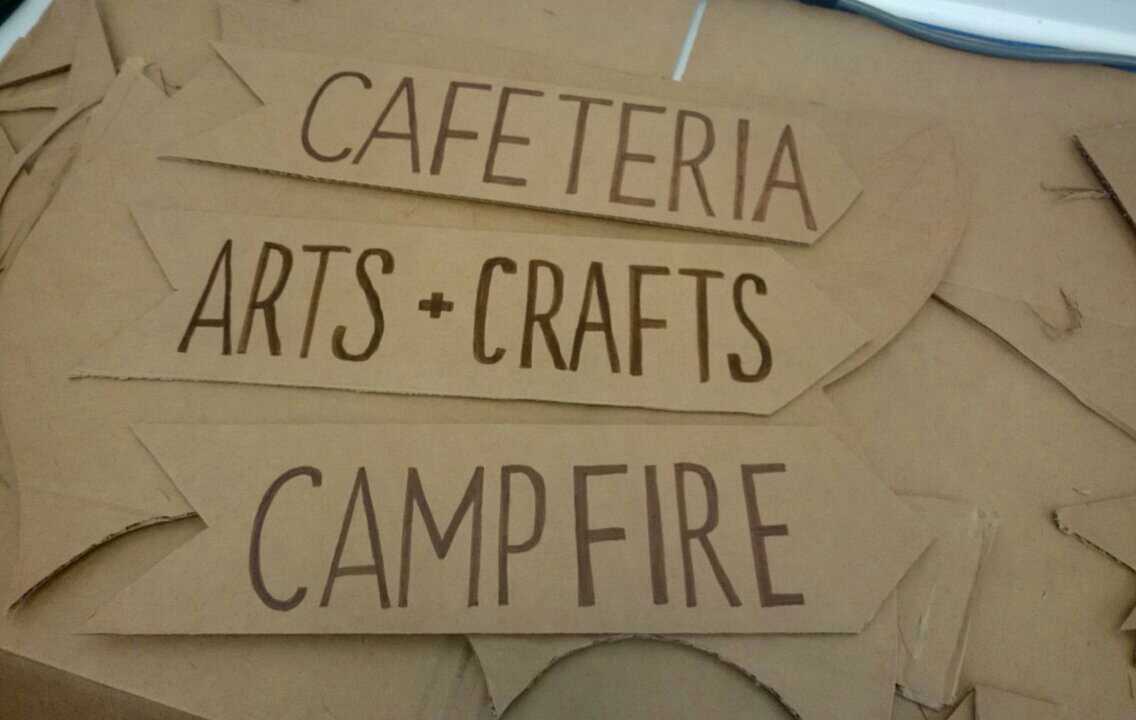 CAFETERIA
ARTS + CRAFTS
CAMPFIRE